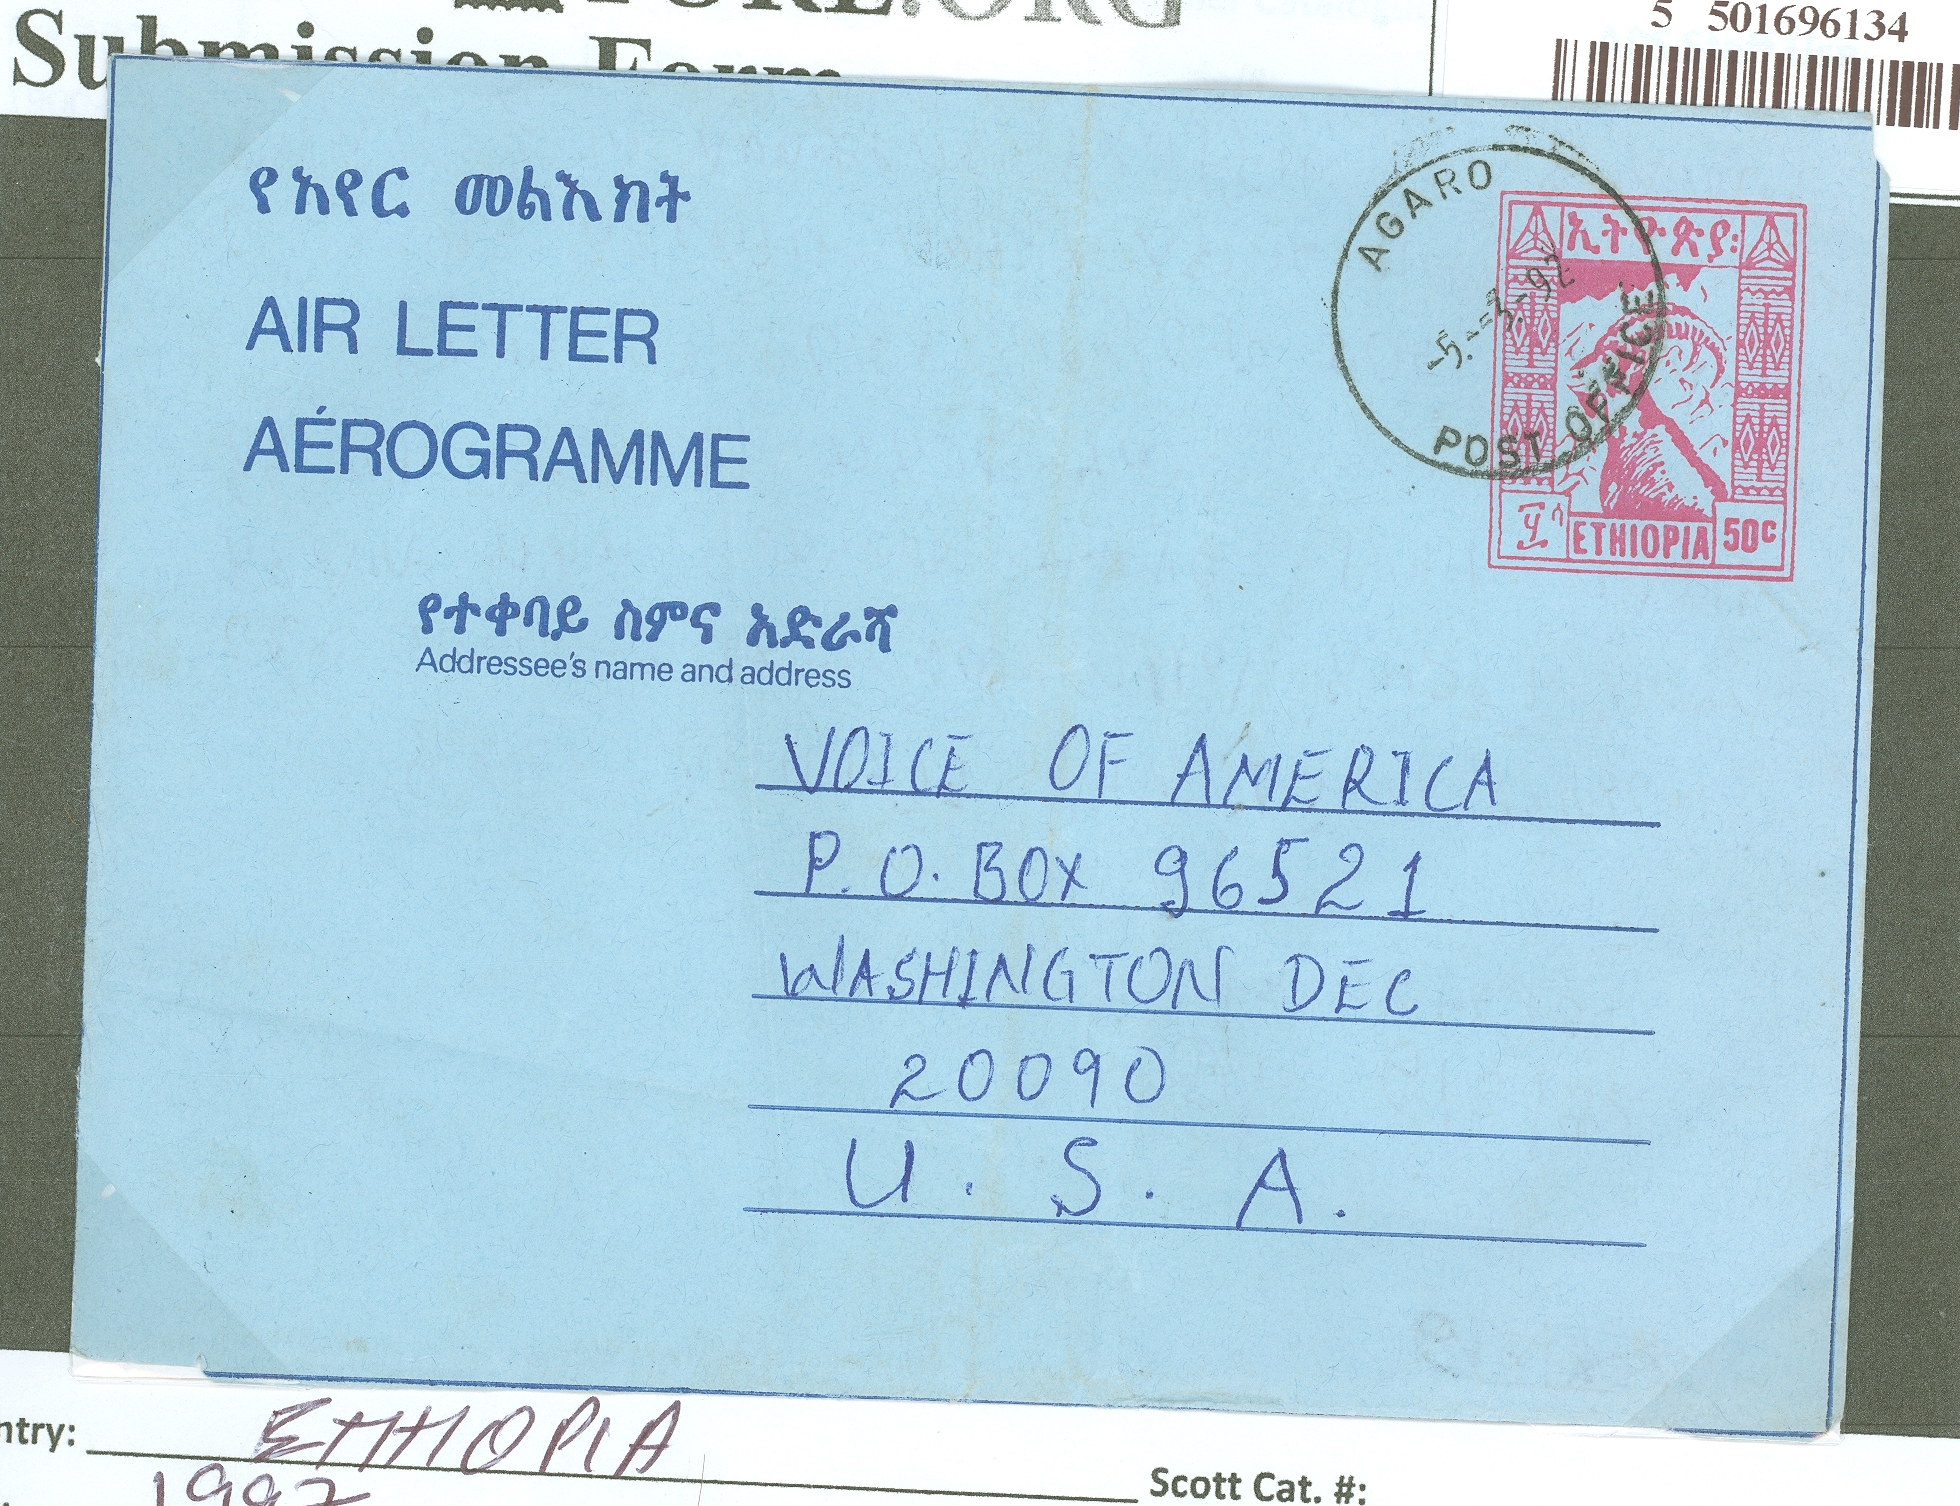 .ORG
Submission Form
5 501696134
የአየር መልእክት
AIR LETTER
AÉROGRAMME
AGARO
-5.-3.-92
POST OFFICE
ኢትዮጵያ፡
፶ ሳ
ETHIOPIA
50c
የተቀባይ ስምና አድራሻ
Addressee's name and address
VOICE OF AMERICA
P.O. BOX 96521
WASHINGTON DEC
20090
U.S.A.
ntry: ETHIOPIA
1992
Scott Cat. #: